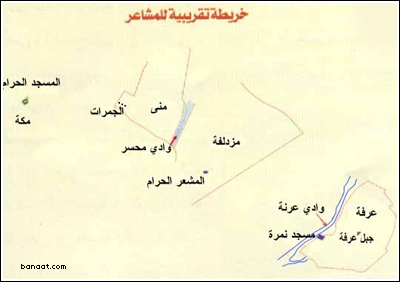 خريطة تقريبية للمشاعر
المسجد الحرام
مكة
الجمرات
منى
وادي محسر
مزدلفة
المشعر الحرام
وادي عرنة
عرفة
مسجد نمرة
جبل عرفة
banaat.com